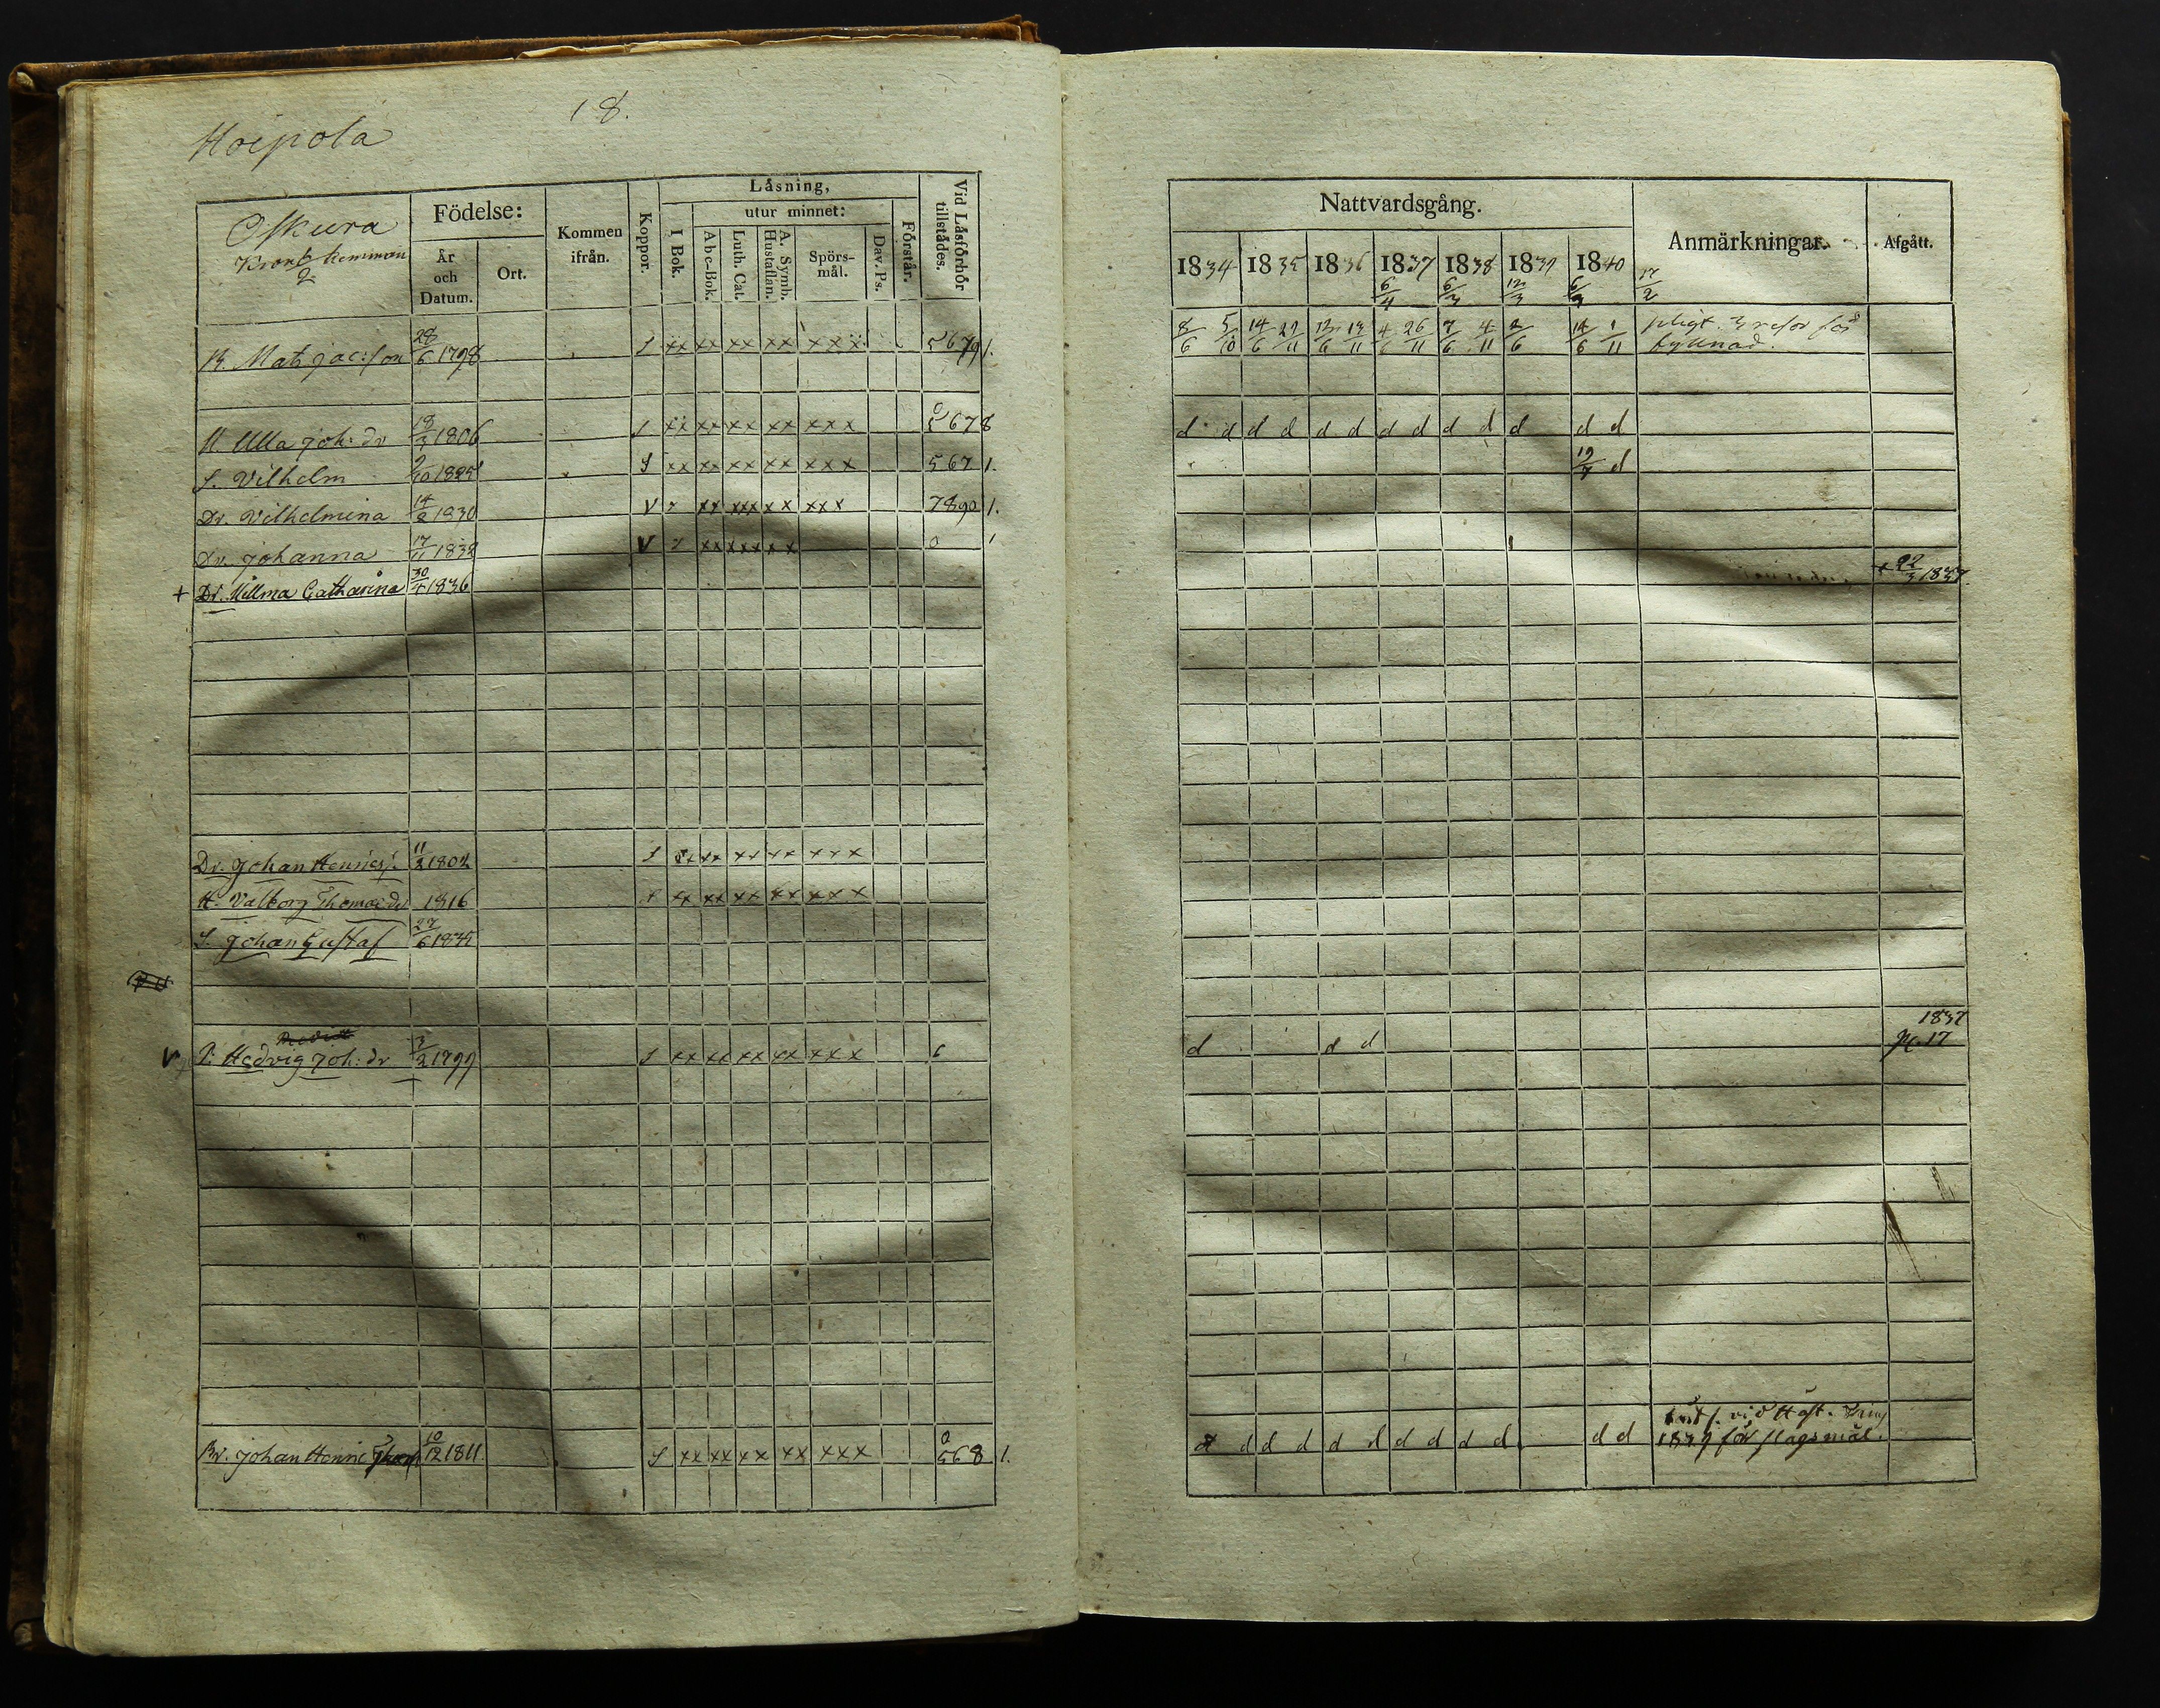 18.
Hoipola
Oskura
Krono hemman
2
Födelse:
År
och
Datum.
Ort.
Kommen
ifrån.
Koppor.
Låsning,
utur minnet:
I Bok.
Abc-Bok.
Luth. Cat.
A. Symb.
Hustaflan.
Spörs-
mål.
Dav. Ps.
Förstår.
Vid Låsförhör
tillstädes.
B. Mats Jac:son 28/6 1798 S xx xx xx xx xxx 5679 1.
H. Ulla Joh: dr 18/3 1806 S xx xx xx xx xxx 5678
S. Vilhelm 9/10 1825 S xx xx xx xx xxx 567 1.
Dr. Vilhelmina 14/2 1830 V x xx xxx xx xxx 7890 1.
Dr. Johanna 17/11 1832 V x xx xx xx 0 1
+ Dr. Millma Catharina 30/4 1836
Dr. Johan Henrics. 11/2 1802 S xx xx xx xx xxx
H. Valborg Thomæ dr 1816 S xx xx xx xx xxx
S. Johan Gustaf 27/6 1835
V P. Hedvig Joh: dr 3/2 1799 S xx xx xx xx xxx 6
Br. Johan Henric 10/12 1811. S xx xx xx xx xxx 568 1.
Nattvardsgång.
Anmärkningar.
Afgått.
1834 1835 1836 1837 1838 1839 1840
6/4 6/3 12/3 6/3 17/2
8/6 5/10 14/6 29/11 12/6 13/11 4/6 26/11 7/6 4/11 2/6 14/6 1/11 pligt. 3 resor för
fyllnad.
d d d d d d d d d d d d d
19/7 d
+ 22/3 1837.
1837
d d d p. 17
vid Höst. Ting
d d d d d d d d d d d d 1839 för slagsmål.